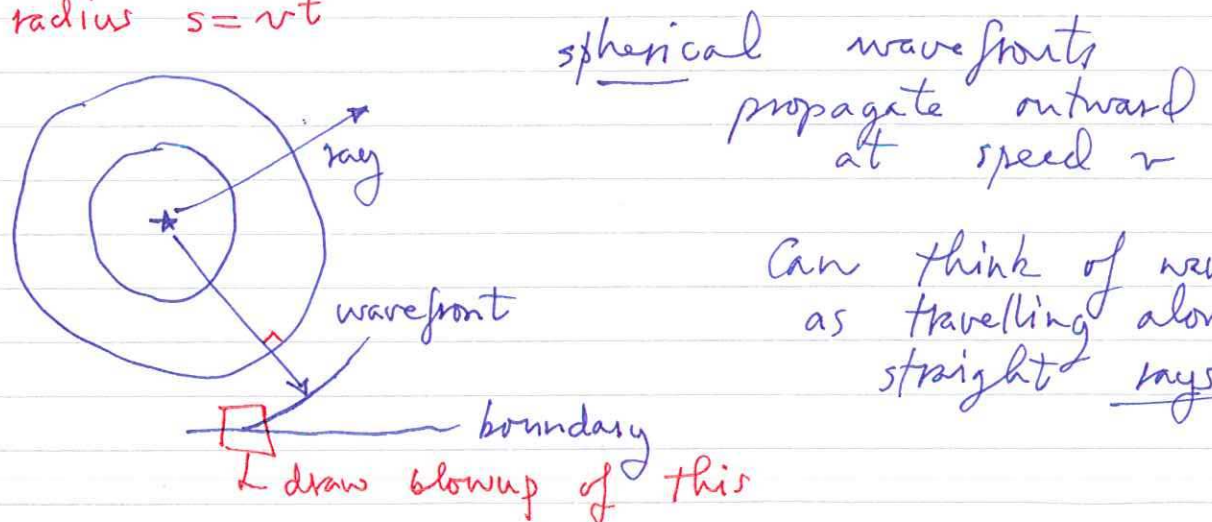 radius s = vt
spherical wavefronts
propagate outward
at speed v
ray
Can think of
as travelling
straight rays
wavefront
boundary
draw blowup of this